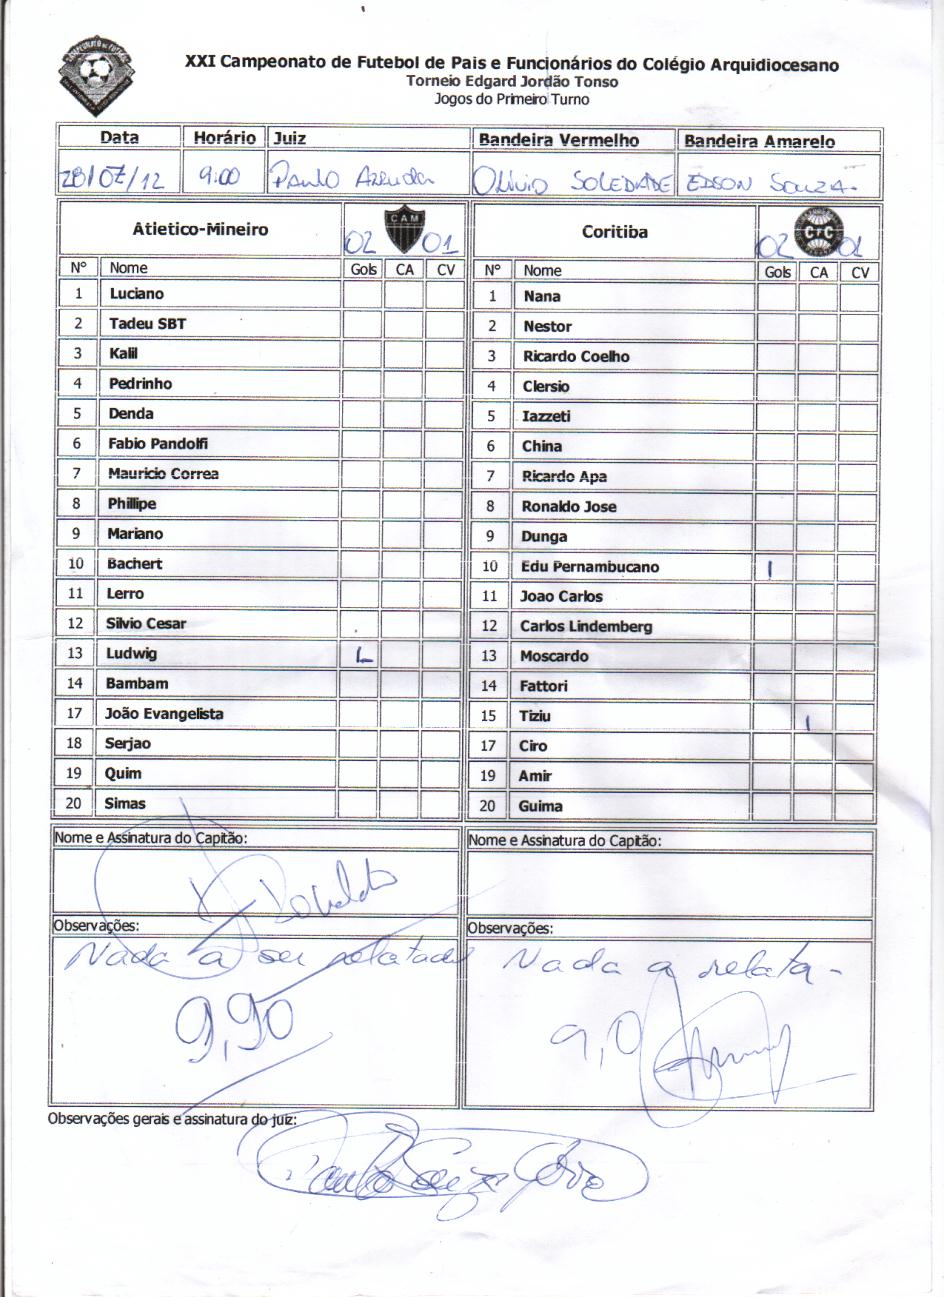 XXI Campeonato de Futebol de Pais e Funcionários do Colégio Arquidiocesano
Torneio Edgard Jordão Tonso
Jogos do Primeiro Turno
Data Horário Juiz Bandeira Vermelho Bandeira Amarelo
28/07/12 9:00 Paulo Arruda OLÍVIO SOLEDADE EDSON SOUZA
Atletico-Mineiro 02 CAM 01 Coritiba 02 CFC 01
Nº Nome Gols CA CV Nº Nome Gols CA CV
1 Luciano 1 Nana
2 Tadeu SBT 2 Nestor
3 Kalil 3 Ricardo Coelho
4 Pedrinho 4 Clersio
5 Denda 5 Iazzeti
6 Fabio Pandolfi 6 China
7 Mauricio Correa 7 Ricardo Apa
8 Phillipe 8 Ronaldo Jose
9 Mariano 9 Dunga
10 Bachert 10 Edu Pernambucano I
11 Lerro 11 Joao Carlos
12 Silvio Cesar 12 Carlos Lindemberg
13 Ludwig L 13 Moscardo
14 Bambam 14 Fattori
17 João Evangelista 15 Tiziu I
18 Serjao 17 Ciro
19 Quim 19 Amir
20 Simas 20 Guima
Nome e Assinatura do Capitão: Nome e Assinatura do Capitão:
Observações: Observações:
Nada a ser relatado Nada a relata-
9,90 9,0
Observações gerais e assinatura do juiz: